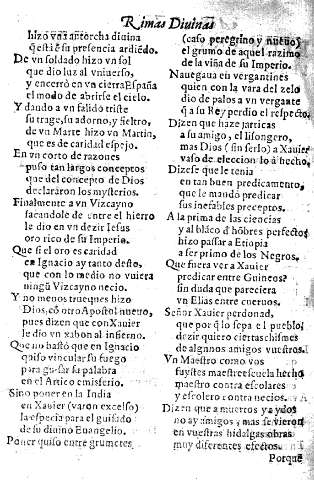 Rimas Diuinas
hizo vna antorcha diuina
q̃ està ẽ su presencia ardiẽdo.
De vn soldado hizo vn sol
que dio luz al vniuerso,
y encerrò en vn cierra España
el modo de abrirse el cielo.
Y dando a vn salido triste
su trage, su adorno, y fieltro,
de vn Marte hizo vn Martin,
que es de caridad espejo.
En vn corto de razones
puso tan largos conceptos
que del concepto de Dios
declararon los mysterios.
Finalmente a vn Vizcayno
sacandole de entre el hierro
le dio en vn dezir Iesus
oro rico de su Imperio.
Que si el oro es caridad
en Ignacio ay tanto desto,
que con lo medio no vuiera
ningũ Vizcayno necio.
Y no menos trueques hizo
Dios, cõ otro Apostol nueuo,
pues dizen que con Xauier
le dio vn xabon al infierno.
Que no bastó que en Ignacio
quiso vincular su fuego
para guisar su palabra
en el Artico emisferio.
Sino poner en la India
en Xauier (varon excelso)
la especia para el guisado
de su diuino Euangelio.
Poner quiso entre grumetes
(caso peregrino y nueuo)
el grumo de aquel razimo
de la viña de su Imperio.
Nauegaua en vergantines
quien con la vara del zelo
dio de palos a vn vergante
q̃ a su Rey perdio el respecto.
Dizen que haze jatricas
a su amigo, el lisongero,
mas Dios (sin serlo) a Xauier
vaso de eleccion lo à hecho.
Dizese que le tenia
en tan buen predicamento,
que le mandò predicar
sus inefables preceptos.
A la prima de las ciencias
y al blãco d̃ hõbres perfectos
hizo passar a Etiopia
a ser primo de los Negros.
Que fuera ver a Xauier
predicar entre Guineos?
sin duda que pareciera
vn Elias entre cueruos.
Señor Xauier perdonad,
que por q̃ lo sepa el pueblo
dezir quiero ciertas chismes
de algunos amigos vuestros.
Vn Maestro como vos
fuystes maestrescuela hecho
maestro contra escolares
y escolero contra necios.
Dizen que a muertos y
ay amigos y mas se vieron
en vuestras hidalgas obras
muy diferentes efectos.
Porque